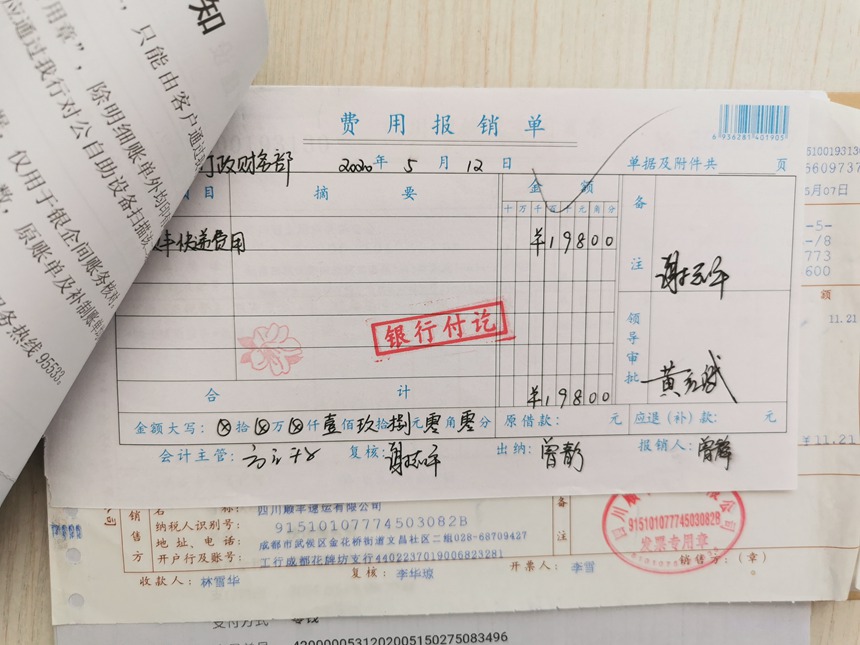 知
用章"，除明细账单外均
，只能由客户通过
应通过我行对公自助设备扫描
，仅用于银企间账务核对，
数，原账单及补制账单
务热线95533。
费用报销单
6 936281 401905
政财务部
2020年5月12日
单据及附件共 页
目 摘要 金额 备
十万千百十元角分
丰快递费用 ¥19800
注
银行付讫
领导审批
合计 ¥19800
金额大写：⊗拾⊗万⊗仟壹佰玖拾捌元零角零分 原借款： 元 应退（补）款： 元
会计主管： 复核： 出纳：曾静 报销人：曾静
5100193130
5609737
5月07日
-5-
-/8
773
600
额
11.21
¥11.21
销售方
名称：四川顺丰速运有限公司
纳税人识别号：91510107774503082B
地址、电话：成都市武侯区金花桥街道文昌社区二组028-68709427
开户行及账号：工行成都花牌坊支行4402237019006823281
备注
91510107774503082B
发票专用章
收款人：林雪华 复核：李华琼 开票人：李雪 销售方：（章）
支付方式 零钱
4200000531202005150275083496